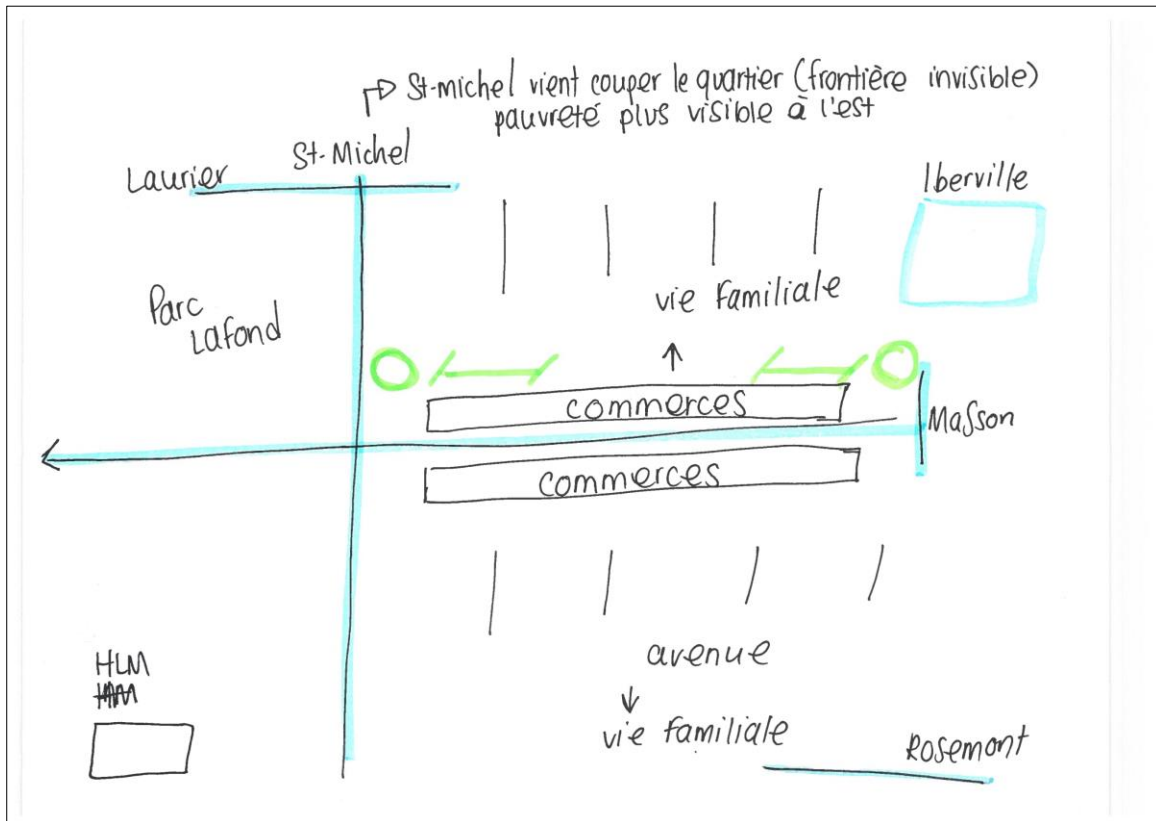 St-michel vient couper le quartier (frontière invisible)
pauvreté plus visible à l'est
St-Michel
Laurier
Iberville
Parc
Lafond
vie familiale
commerces
Masson
commerces
avenue
HLM
vie familiale
Rosemont